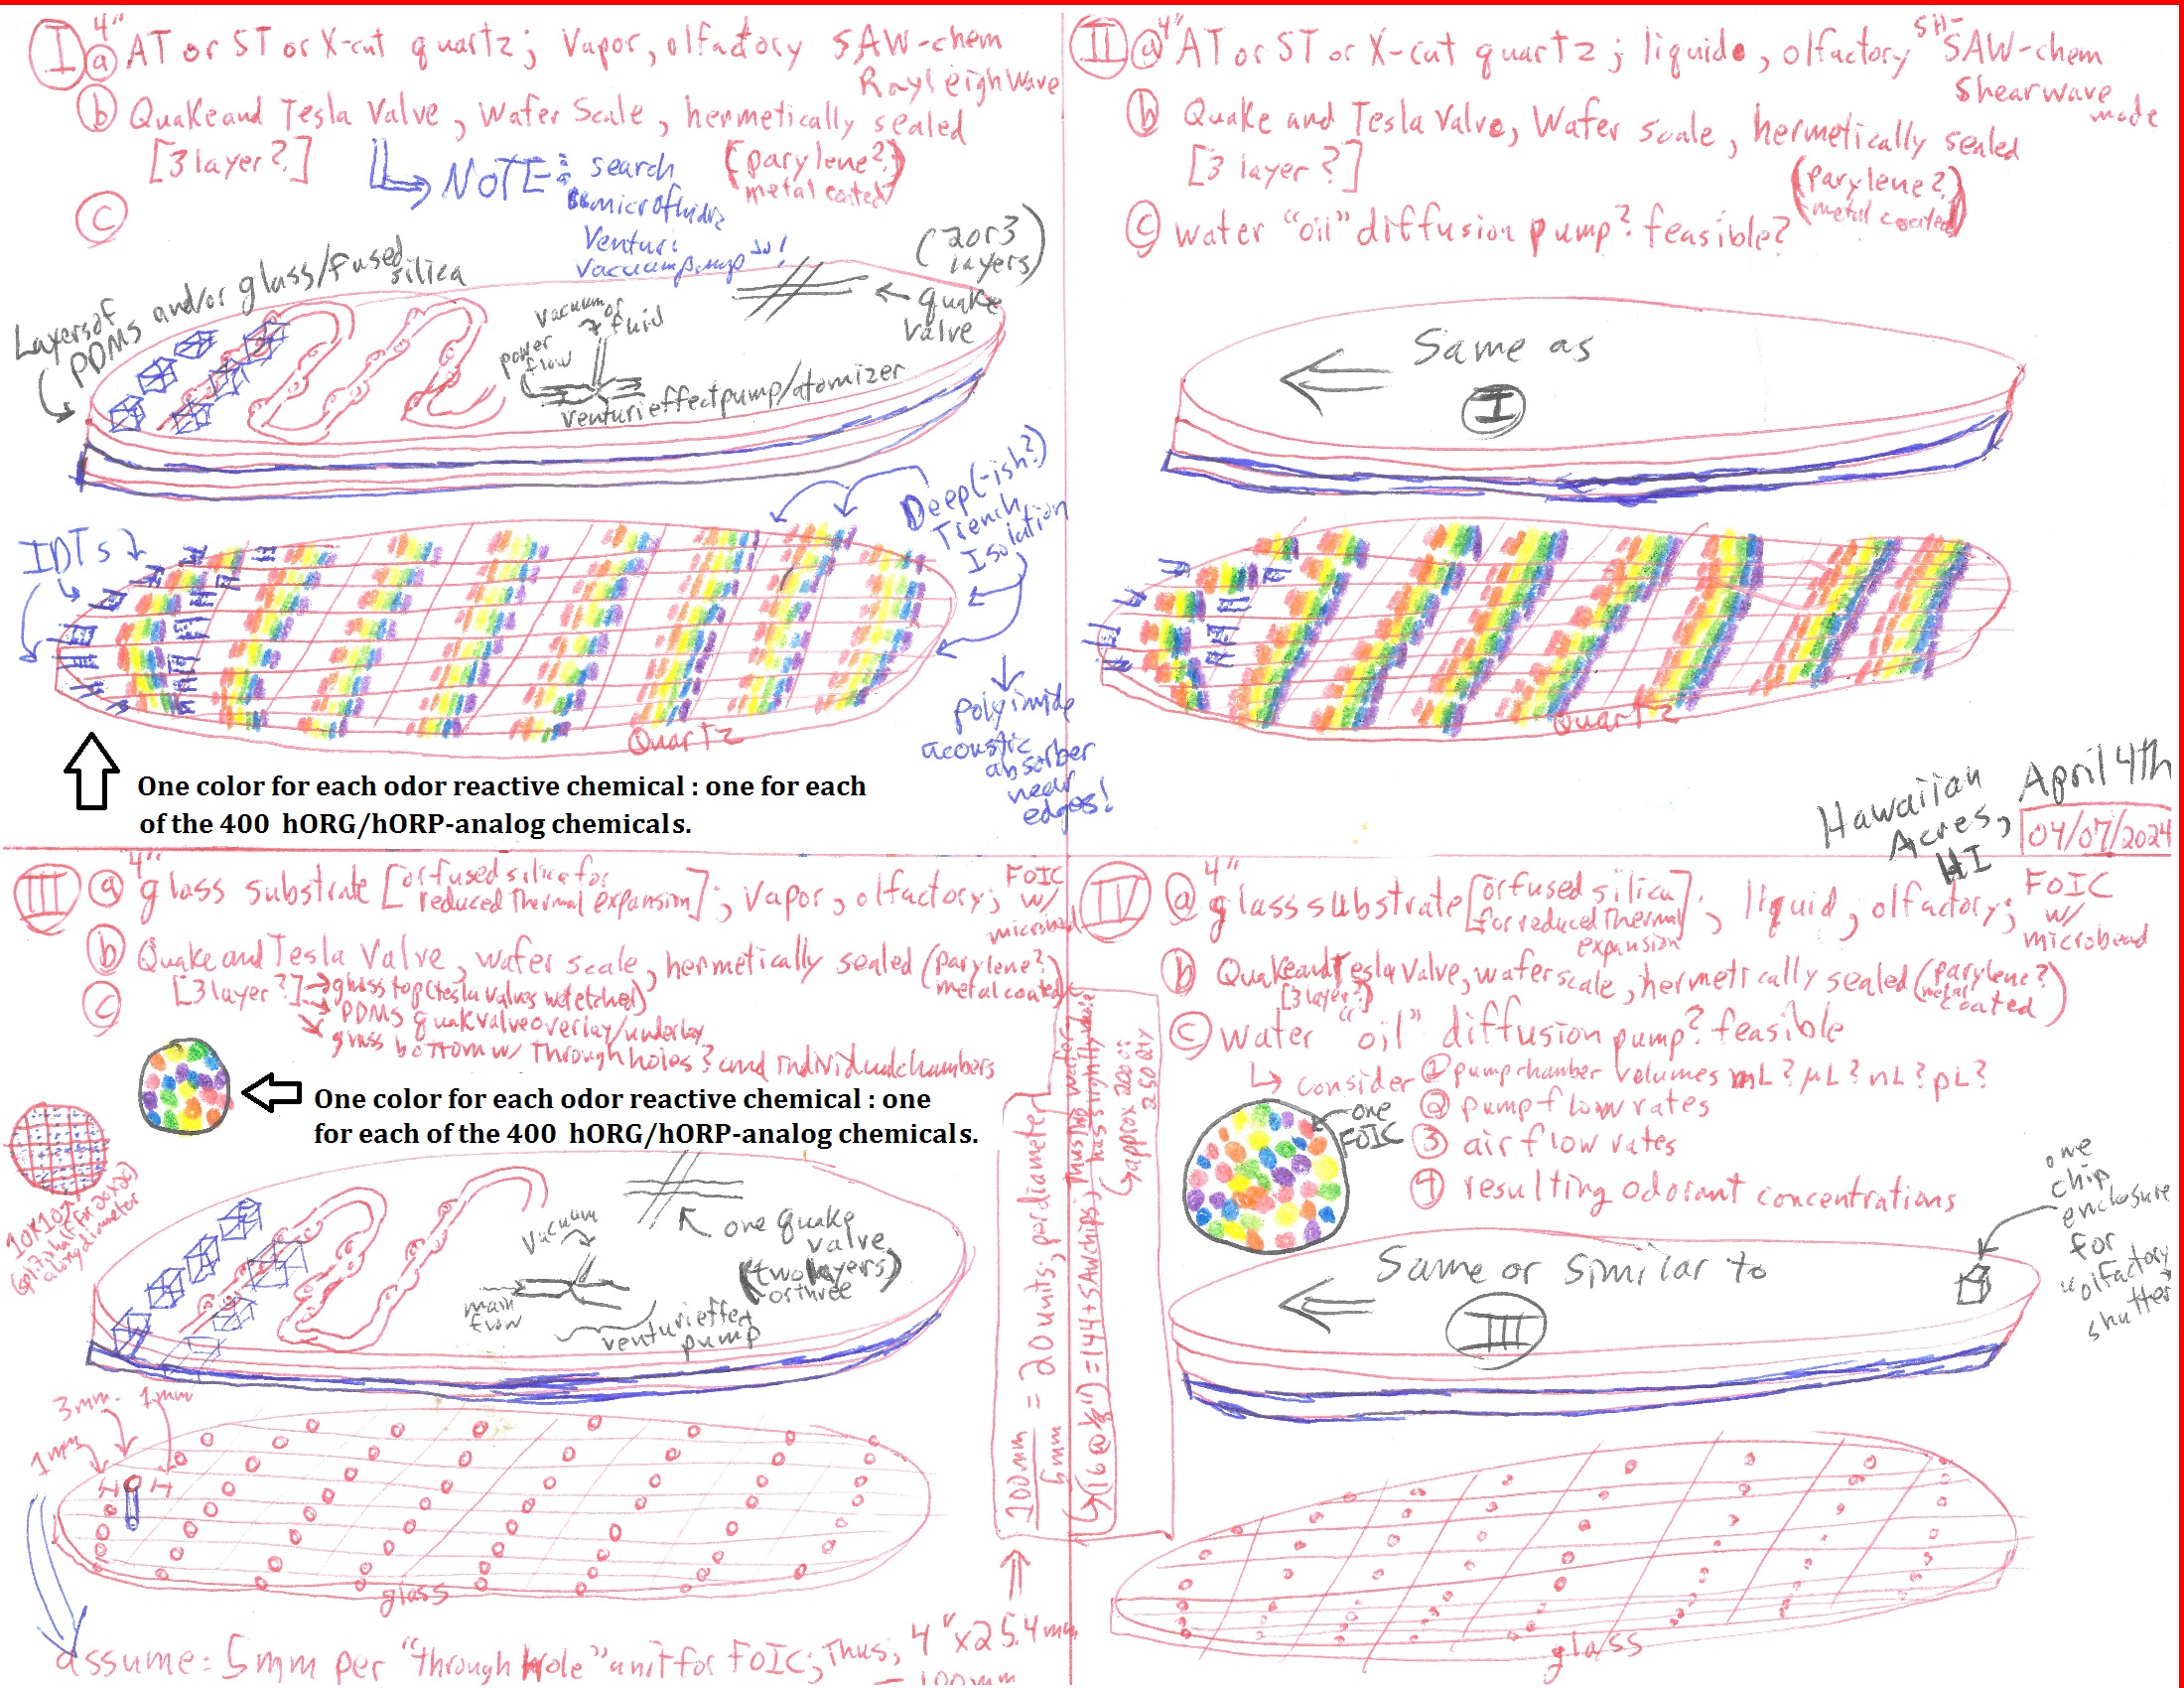 I 4"
a AT or ST or X-cut quartz; Vapor, olfactory SAW-chem
Rayleigh Wave
b Quake and Tesla Valve, Wafer Scale, hermetically sealed
[3 layer?]
(parylene?
metal coated)
NOTE: search
"microfluidic
Venturi
vacuum pump"!
c
Layers of
PDMS and/or glass/fused
silica
(2 or 3
layers)
quake
valve
vacuum or
fluid
power
flow
venturi effect pump/atomizer
IDTs
Deep(-ish?)
Trench
Isolation
polyimide
acoustic
absorber
near
edges!
Quartz
One color for each odor reactive chemical : one for each
of the 400 hORG/hORP-analog chemicals.
II 4"
a AT or ST or X-cut quartz; liquid, olfactory SH-SAW-chem
Shearwave
mode
b Quake and Tesla Valve, Wafer scale, hermetically sealed
[3 layer?]
(parylene?
metal coated)
c water "oil" diffusion pump? feasible?
Same as
I
Quartz
Hawaiian
Acres,
HI
April 4th
04/07/2024
III 4"
a glass substrate [or fused silica for
reduced thermal expansion]; vapor, olfactory; FOIC
w/
microbead
b Quake and Tesla Valve, wafer scale, hermetically sealed (parylene?
metal coated)
[3 layer?] → glass top (tesla valves wet etched)
→ PDMS quak valve overlay/underlay
glass bottom w/ through holes? and individual chambers
c
One color for each odor reactive chemical : one
for each of the 400 hORG/hORP-analog chemicals.
10x10
along diameter
one quake
valve
(two layers)
or three
vacuum
main
flow
venturi effect
pump
3mm
1mm
1mm
glass
assume: 5mm per "through hole" unit for FOIC; Thus; 4" x 25.4mm
= 100mm
100mm
5mm
= 20 units, per diameter
(16 @ 1/8") = 144+ SAW chips,
approx 200 or
250 qty
IV 4"
a glass substrate [or fused silica
for reduced thermal
expansion]; liquid, olfactory; FOIC
w/
microbead
b Quake and Tesla Valve, wafer scale, hermetically sealed (parylene?
metal
coated)
[3 layer?]
c water "oil" diffusion pump? feasible
↳ consider 1 pump chamber volumes mL? μL? nL? pL?
2 pump flow rates
3 air flow rates
4 resulting odorant concentrations
one
FOIC
one
chip
enclosure
for
olfactory
shutter
Same or similar to
III
glass